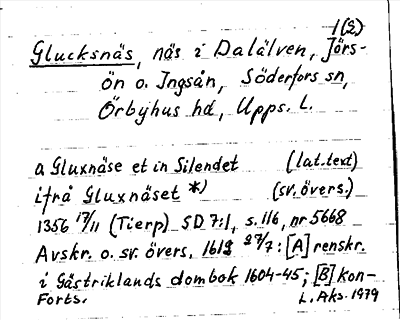 1(2)
Glucksnäs, näs i Dalälven, Jörs-
ön o. Ingsån, Söderfors sn,
Örbyhus hd, Upps. L.
a Gluxnäse et in Silendet (lat. text)
ifrå Gluxnäset *) (sv. övers.)
1356 17/11 (Tierp) SD 7:1, s. 116, nr 5668
Avskr. o. sv. övers. 1612 27/7: [A] renskr.
i Gästriklands dombok 1604-45; [B] kon-
Forts. L. Aks. 1979